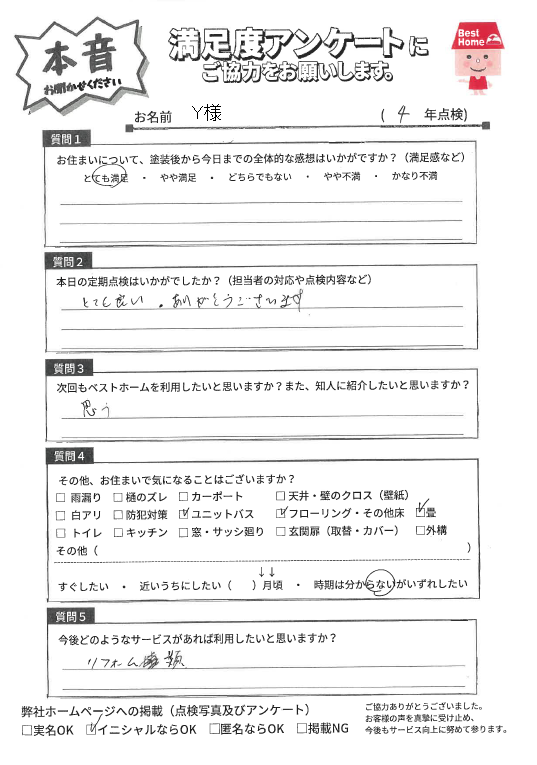 本音
お聞かせください
満足度アンケートに
ご協力をお願いします。
Best Home
お名前 Y様 (4 年点検)
質問1
お住まいについて、塗装後から今日までの全体的な感想はいかがですか？（満足感など）
とても満足 ・ やや満足 ・ どちらでもない ・ やや不満 ・ かなり不満
質問2
本日の定期点検はいかがでしたか？（担当者の対応や点検内容など）
とても良い。ありがとうございます
質問3
次回もベストホームを利用したいと思いますか？また、知人に紹介したいと思いますか？
思う
質問4
その他、お住まいで気になることはございますか？
□ 雨漏り □ 樋のズレ □ カーポート □ 天井・壁のクロス（壁紙）
□ 白アリ □ 防犯対策 ☑ ユニットバス ☑ フローリング・その他床 ☑ 畳
□ トイレ □ キッチン □ 窓・サッシ廻り □ 玄関扉（取替・カバー） □ 外構
その他（ ）
↓↓
すぐしたい ・ 近いうちにしたい（ ）月頃 ・ 時期は分からないがいずれしたい
質問5
今後どのようなサービスがあれば利用したいと思いますか？
リフォーム 類
弊社ホームページへの掲載（点検写真及びアンケート）
□実名OK ☑イニシャルならOK □匿名ならOK □掲載NG
ご協力ありがとうございました。
お客様の声を真摯に受け止め、
今後もサービス向上に努めて参ります。